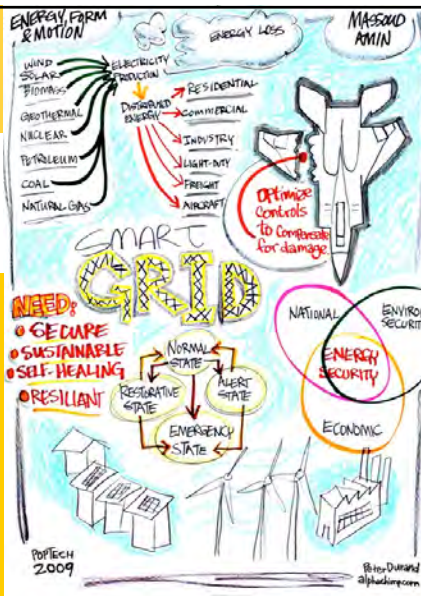 ENERGY, FORM
& MOTION
ENERGY LOSS
MASSOUD
AMIN
WIND
SOLAR
BIOMASS
GEOTHERMAL
NUCLEAR
PETROLEUM
COAL
NATURAL GAS
ELECTRICITY
PRODUCTION
DISTRIBUTED
ENERGY
RESIDENTIAL
COMMERCIAL
INDUSTRY
LIGHT-DUTY
FREIGHT
AIRCRAFT
OPTIMIZE
CONTROLS
to COMPENSATE
for DAMAGE.
SMART
GRID
NEED:
SECURE
SUSTAINABLE
SELF-HEALING
RESILIANT
NORMAL
STATE
RESTORATIVE
STATE
ALERT
STATE
EMERGENCY
STATE
NATIONAL
ENVIRO
SECURIT
ENERGY
SECURITY
ECONOMIC
POPTECH
2009
PETER DURAND
alphachimp.com